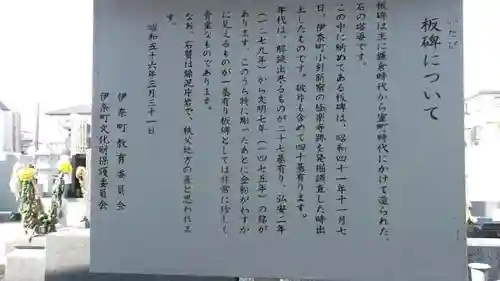 板碑について
いたび
板碑は主に鎌倉時代から室町時代にかけて造られた、
石の塔婆です。
この中に納めてある板碑は、昭和四十一年十一月七
日、伊奈町小針新宿の極楽寺跡を発掘調査した時出
土したものです。破片も含めて四十基有り、
年代は、解読出来るものが二十七基有り、弘安二年
（一二七九年）から文明七年（一四七五年）の銘が
あります。このうち特に彫ったあとに金粉がわずか
に見えるものが一基有り板碑としては非常に珍しく、
貴重なものであります。
なお、石質は緑泥片岩で、秩父地方の産と思われま
す。
昭和五十六年三月三十一日
伊奈町教育委員会
伊奈町文化財保護委員会